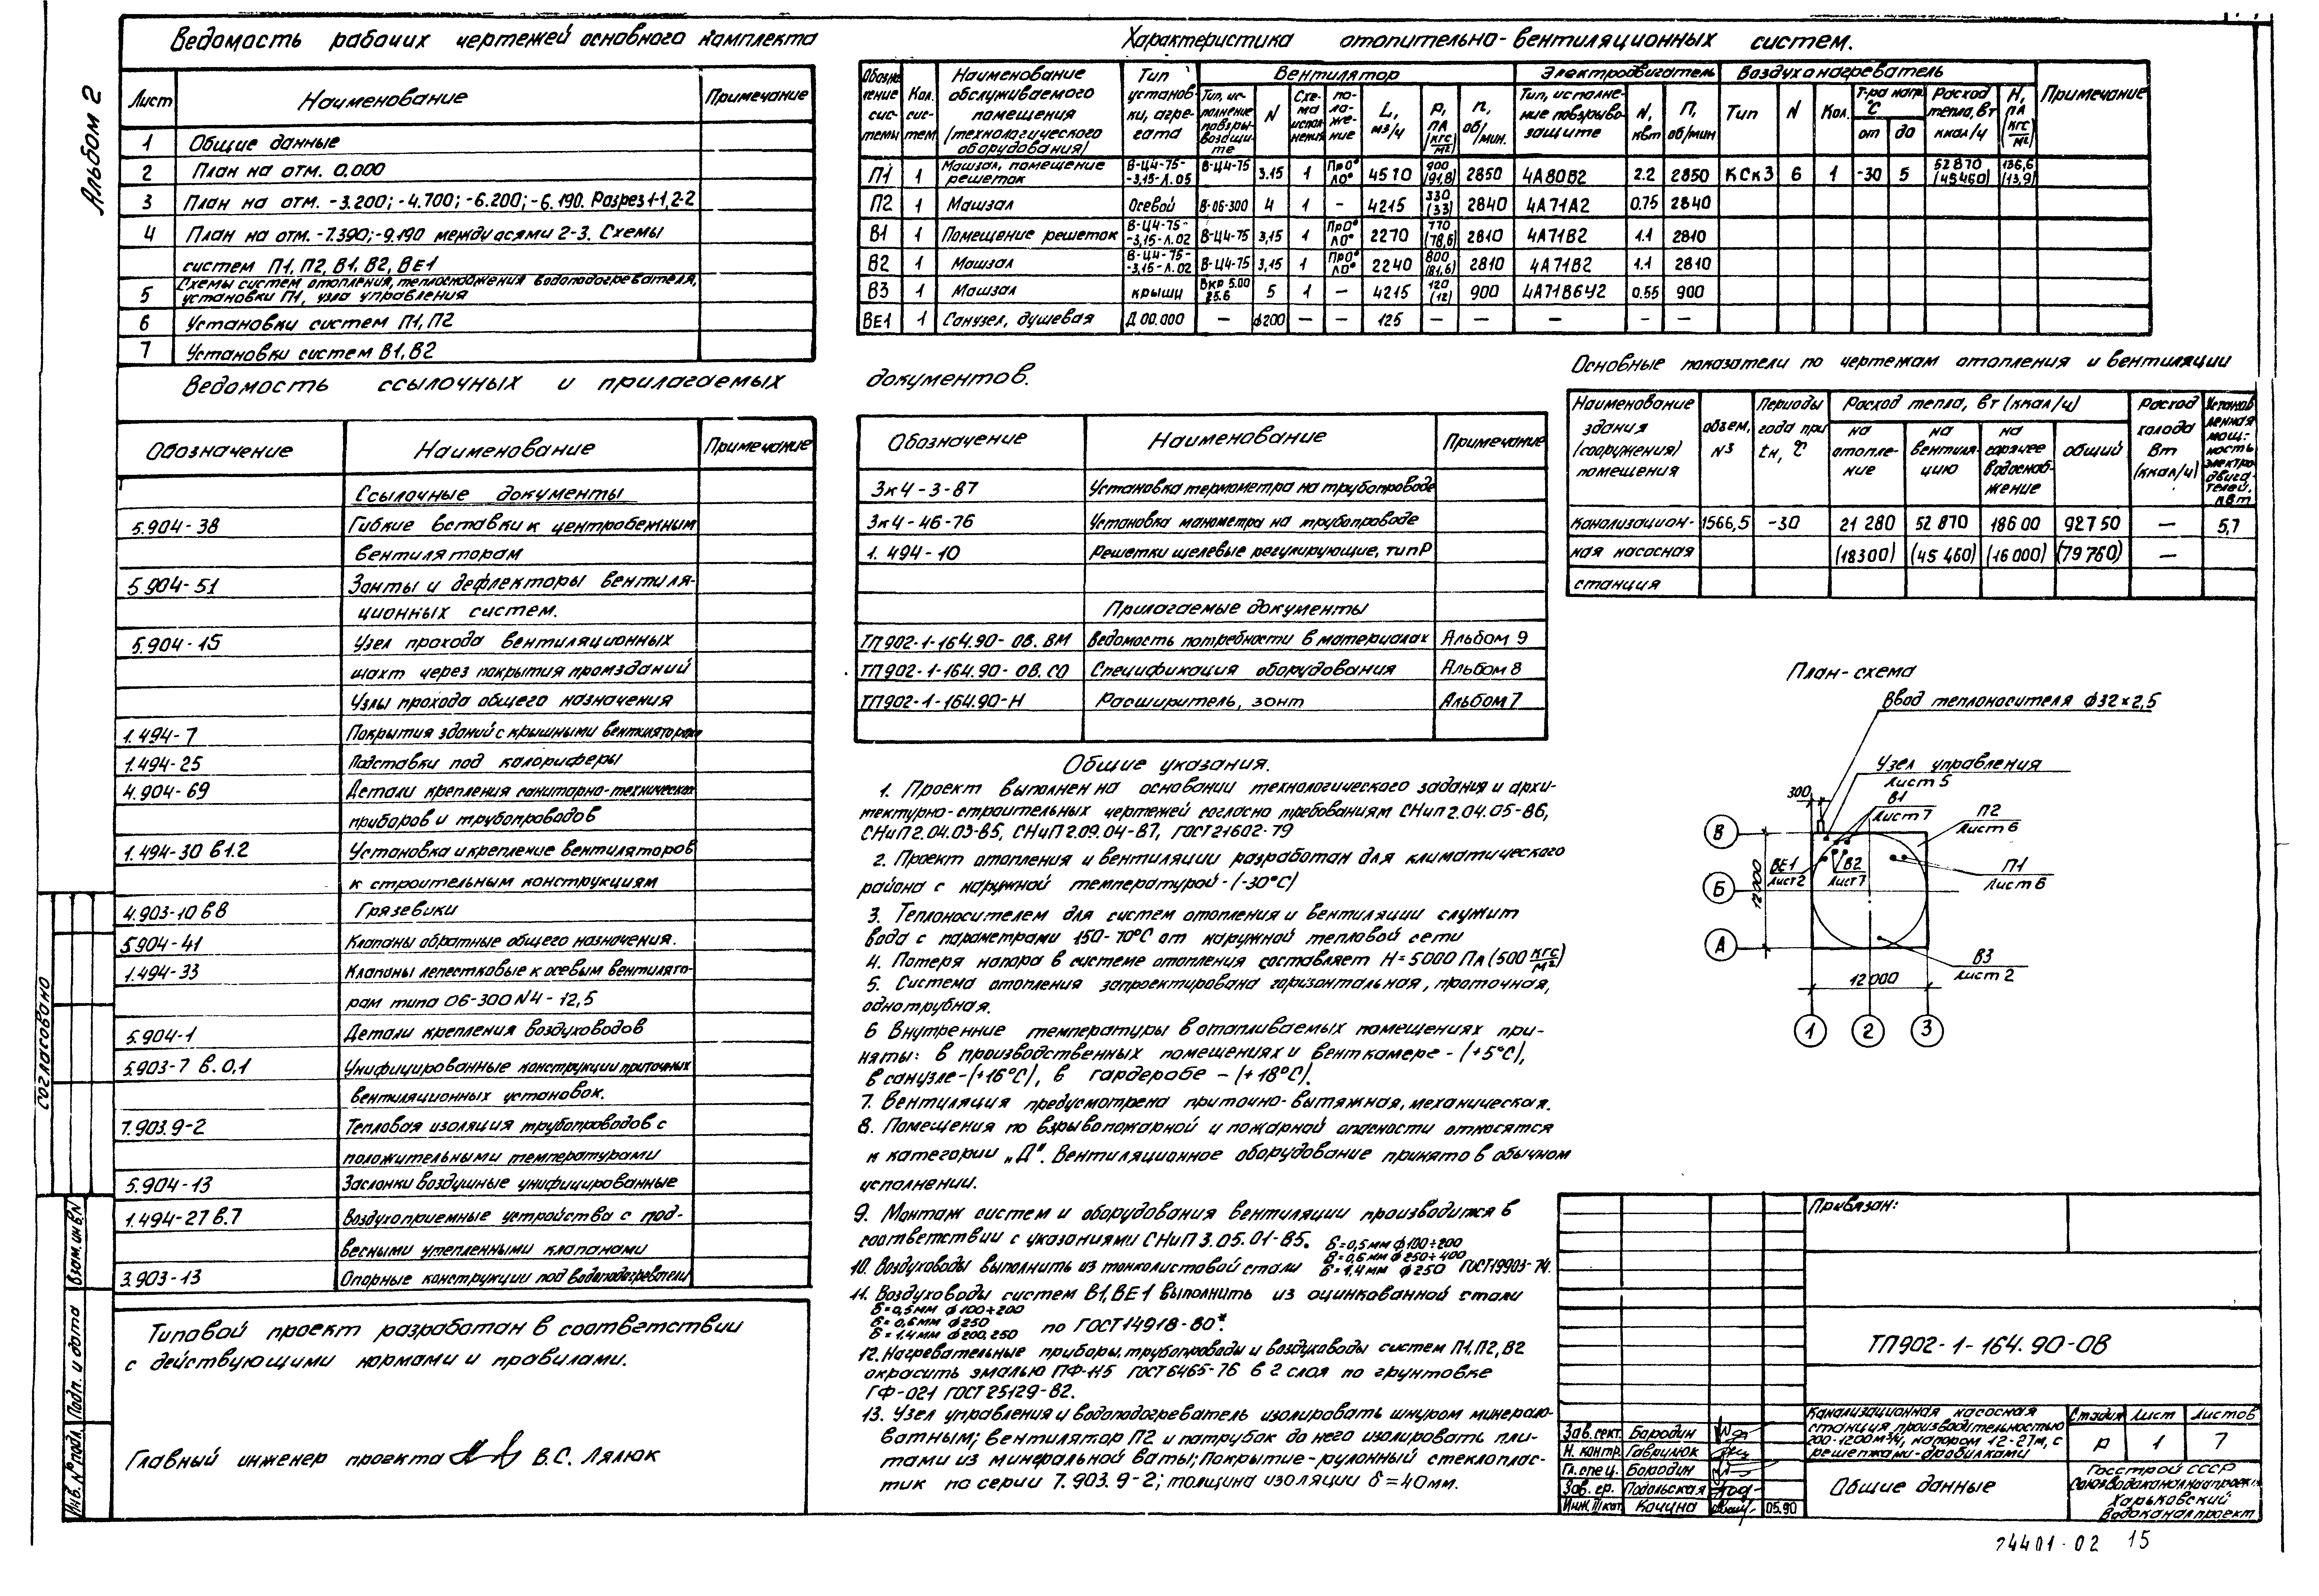 Альбом 2
Ведомость рабочих чертежей основного комплекта
Лист Наименование Примечание
1 Общие данные
2 План на отм. 0.000
3 План на отм. -3.200; -4.700; -6.200; -6.190. Разрез 1-1, 2-2
4 План на отм. -7.390; -9.190 между осями 2-3. Схемы
систем П1, П2, В1, В2, ВЕ1
Схемы систем отопления, теплоснабжения водоподогревателя,
5 установки П1, узла управления
6 Установки систем П1, П2
7 Установки систем В1, В2
Ведомость ссылочных и прилагаемых документов.
Обозначение Наименование Примечание
Ссылочные документы
5.904-38 Гибкие вставки к центробежным
вентиляторам
5.904-51 Зонты и дефлекторы вентиля-
ционных систем.
5.904-15 Узел прохода вентиляционных
шахт через покрытия промзданий
Узлы прохода общего назначения
1.494-7 Покрытия зданий с крышными вентиляторами
1.494-25 Подставки под калориферы
4.904-69 Детали крепления санитарно-технических
приборов и трубопроводов
1.494-30 в1.2 Установка и крепление вентиляторов
к строительным конструкциям
4.903-10 в8 Грязевики
5.904-41 Клапаны обратные общего назначения.
1.494-33 Клапаны лепестковые к осевым вентилято-
рам типа 06-300 N4-12,5
5.904-1 Детали крепления воздуховодов
5.903-7 в.0,1 Унифицированные конструкции приточных
вентиляционных установок.
7.903.9-2 Тепловая изоляция трубопроводов с
положительными температурами
5.904-13 Заслонки воздушные унифицированные
1.494-27 в.7 Воздухоприемные устройства с под-
весными утепленными клапанами
3.903-13 Опорные конструкции под водоподогреватели
Типовой проект разработан в соответствии
с действующими нормами и правилами.
Главный инженер проекта В.С. Лялюк
Характеристика отопительно-вентиляционных систем.
Обозначение систем Кол. систем Наименование обслуживаемого помещения /технологического оборудования/ Тип установки, агрегата Вентилятор Электродвигатель Воздухонагреватель Примечание
Тип, исполнение по взрывозащите N Схема исполнения положение L, м3/ч P, ПА (кгс/м2) n, об/мин. Тип, исполнение по взрывозащите N, квт П, об/мин Тип N Кол. Т-ра нагр. °С от до Расход тепла, Вт ккал/ч Н, ПА (кгс/м2)
П1 1 Машзал, помещение решеток В-Ц4-75-3,15-Л.05 В-Ц4-75 3.15 1 Пр0° Л0° 4510 900 (91,8) 2850 4А80В2 2.2 2850 КСк3 6 1 -30 5 52870 (45460) 136,6 (13,9)
П2 1 Машзал Осевой В-06-300 4 1 - 4215 330 (33) 2840 4А71А2 0.75 2840
В1 1 Помещение решеток В-Ц4-75-3,15-Л.02 В-Ц4-75 3,15 1 Пр0° Л0° 2270 770 (78,6) 2810 4А71В2 1.1 2810
В2 1 Машзал В-Ц4-75-3,15-Л.02 В-Ц4-75 3,15 1 Пр0° Л0° 2240 800 (81,6) 2810 4А71В2 1.1 2810
В3 1 Машзал крышн ВКР 5.00 25.6 5 1 — 4215 120 (12) 900 4А71В6У2 0.55 900
ВЕ1 1 Санузел, душевая Д 00.000 — ф200 — — 125 — — — — —
Обозначение Наименование Примечание
3к4-3-87 Установка термометра на трубопроводе
3к4-46-76 Установка манометра на трубопроводе
1.494-10 Решетки щелевые регулирующие, тип Р
Прилагаемые документы
ТП902-1-164.90-ОВ.ВМ Ведомость потребности в материалах Альбом 9
ТП902-1-164.90-ОВ.СО Спецификация оборудования Альбом 8
ТП902-1-164.90-Н Расширитель, зонт Альбом 7
Основные показатели по чертежам отопления и вентиляции
Наименование здания (сооружения) помещения объем, м3 Периоды года при tн, °С Расход тепла, Вт (ккал/ч) Расход холода Вт (ккал/ч) Установленная мощность электродвигателей, квт
на отопление на вентиляцию на горячее водоснабжение общий
Канализацион- 1566,5 -30 21 280 52 870 18600 92750 — 5,7
ная насосная (18300) (45 460) (16 000) (79 760) —
станция
Общие указания.
1. Проект выполнен на основании технологического задания и архи-
тектурно-строительных чертежей согласно требованиям СНиП 2.04.05-86,
СНиП 2.04.03-85, СНиП 2.09.04-87, ГОСТ 21602-79
2. Проект отопления и вентиляции разработан для климатического
района с наружной температурой -(-30°С)
3. Теплоносителем для систем отопления и вентиляции служит
вода с параметрами 150-70°С от наружной тепловой сети
4. Потеря напора в системе отопления составляет Н=5000 Па (500 кгс/м2)
5. Система отопления запроектирована горизонтальная, проточная,
однотрубная.
6 Внутренние температуры в отапливаемых помещениях при-
няты: в производственных помещениях и венткамере -(+5°С),
в санузле-(+16°С), в гардеробе -(+18°С).
7. Вентиляция предусмотрена приточно-вытяжная, механическая.
8. Помещения по взрывопожарной и пожарной опасности относятся
к категории „Д". Вентиляционное оборудование принято в обычном
исполнении.
9. Монтаж систем и оборудования вентиляции производится в
соответствии с указаниями СНиП 3.05.01-85.
10. Воздуховоды выполнить из тонколистовой стали δ=0,5мм ф100÷200 δ=0,6мм ф250÷400 δ=1,4мм ф250 ГОСТ19903-74.
11. Воздуховоды систем В1, ВЕ1 выполнить из оцинкованной стали
δ=0,5мм ф100÷200
δ=0,6мм ф250
δ=1,4мм ф200,250 по ГОСТ14918-80*.
12. Нагревательные приборы, трубопроводы и воздуховоды систем П1, П2, В2
окрасить эмалью ПФ-115 ГОСТ 6465-76 в 2 слоя по грунтовке
ГФ-021 ГОСТ 25129-82.
13. Узел управления и водоподогреватель изолировать шнуром минерало-
ватным; вентилятор П2 и патрубок до него изолировать пли-
тами из минеральной ваты; Покрытие-рулонный стеклоплас-
тик по серии 7.903.9-2; толщина изоляции δ=40мм.
План-схема
Ввод теплоносителя ф32×2,5
Узел управления
Лист 5
300
В1
Лист 7
П2
Лист 6
В
ВЕ1
Лист 2
В2
Лист 7
П1
Лист 6
Б
12000
А
В3
Лист 2
12000
1 2 3
Привязан:
ТП902-1-164.90-ОВ
Зав.сект. Бородин
Н. контр. Гаврилюк
Гл. спец. Бородин
Зав. гр. Подольская
Инж. III кат. Кочина 05.90
Канализационная насосная
станция производительностью
200-1200м3/ч, напором 12-27м, с
решетками-дробилками
Стадия Лист Листов
Р 1 7
Общие данные
Госстрой СССР
Союзводоканалниипроект
Харьковский
Водоканалпроект
24401-02 15
Согласовано
Взам.инв.N
Подп. и дата
Инв.№ подл.